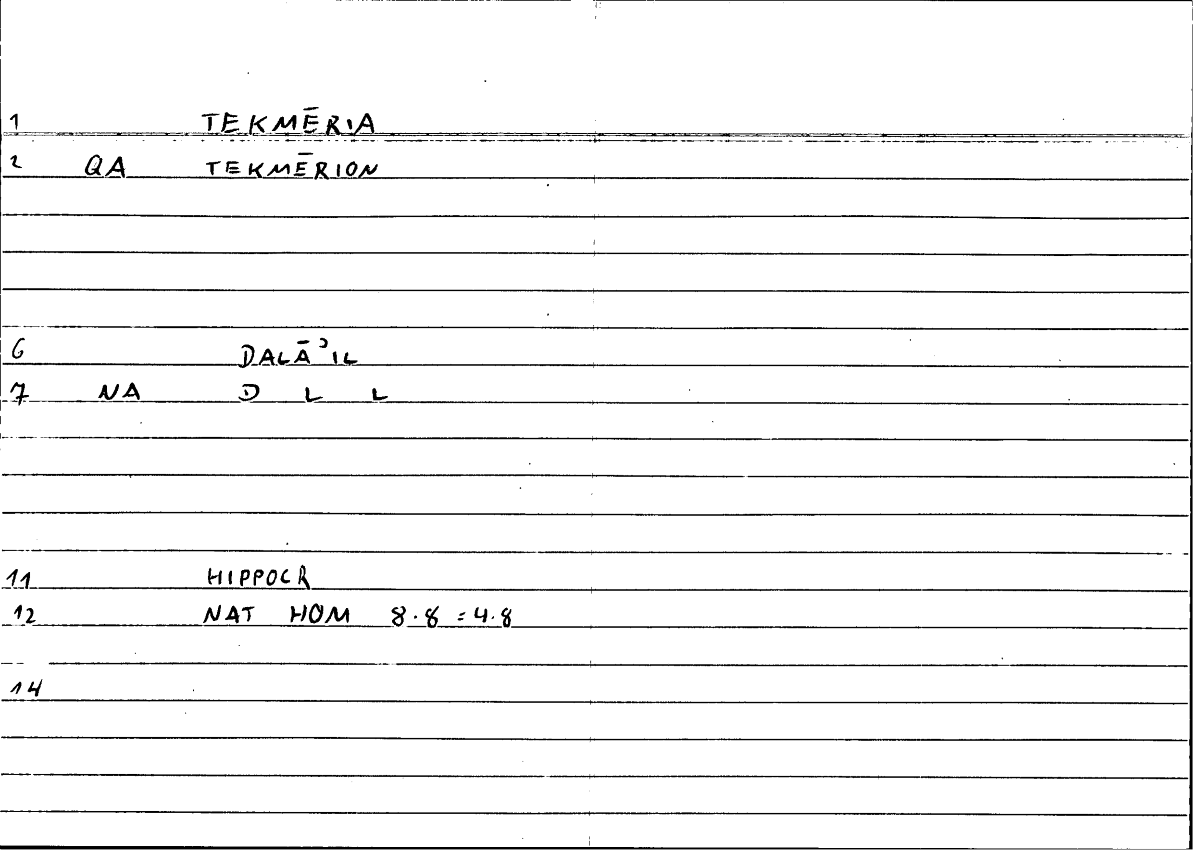 1 TEKMĒRIA
2 QA TEKMĒRION
6 DALĀʾIL
7 NA D L L
11 HIPPOCR
12 NAT HOM 8.8 = 4.8
14